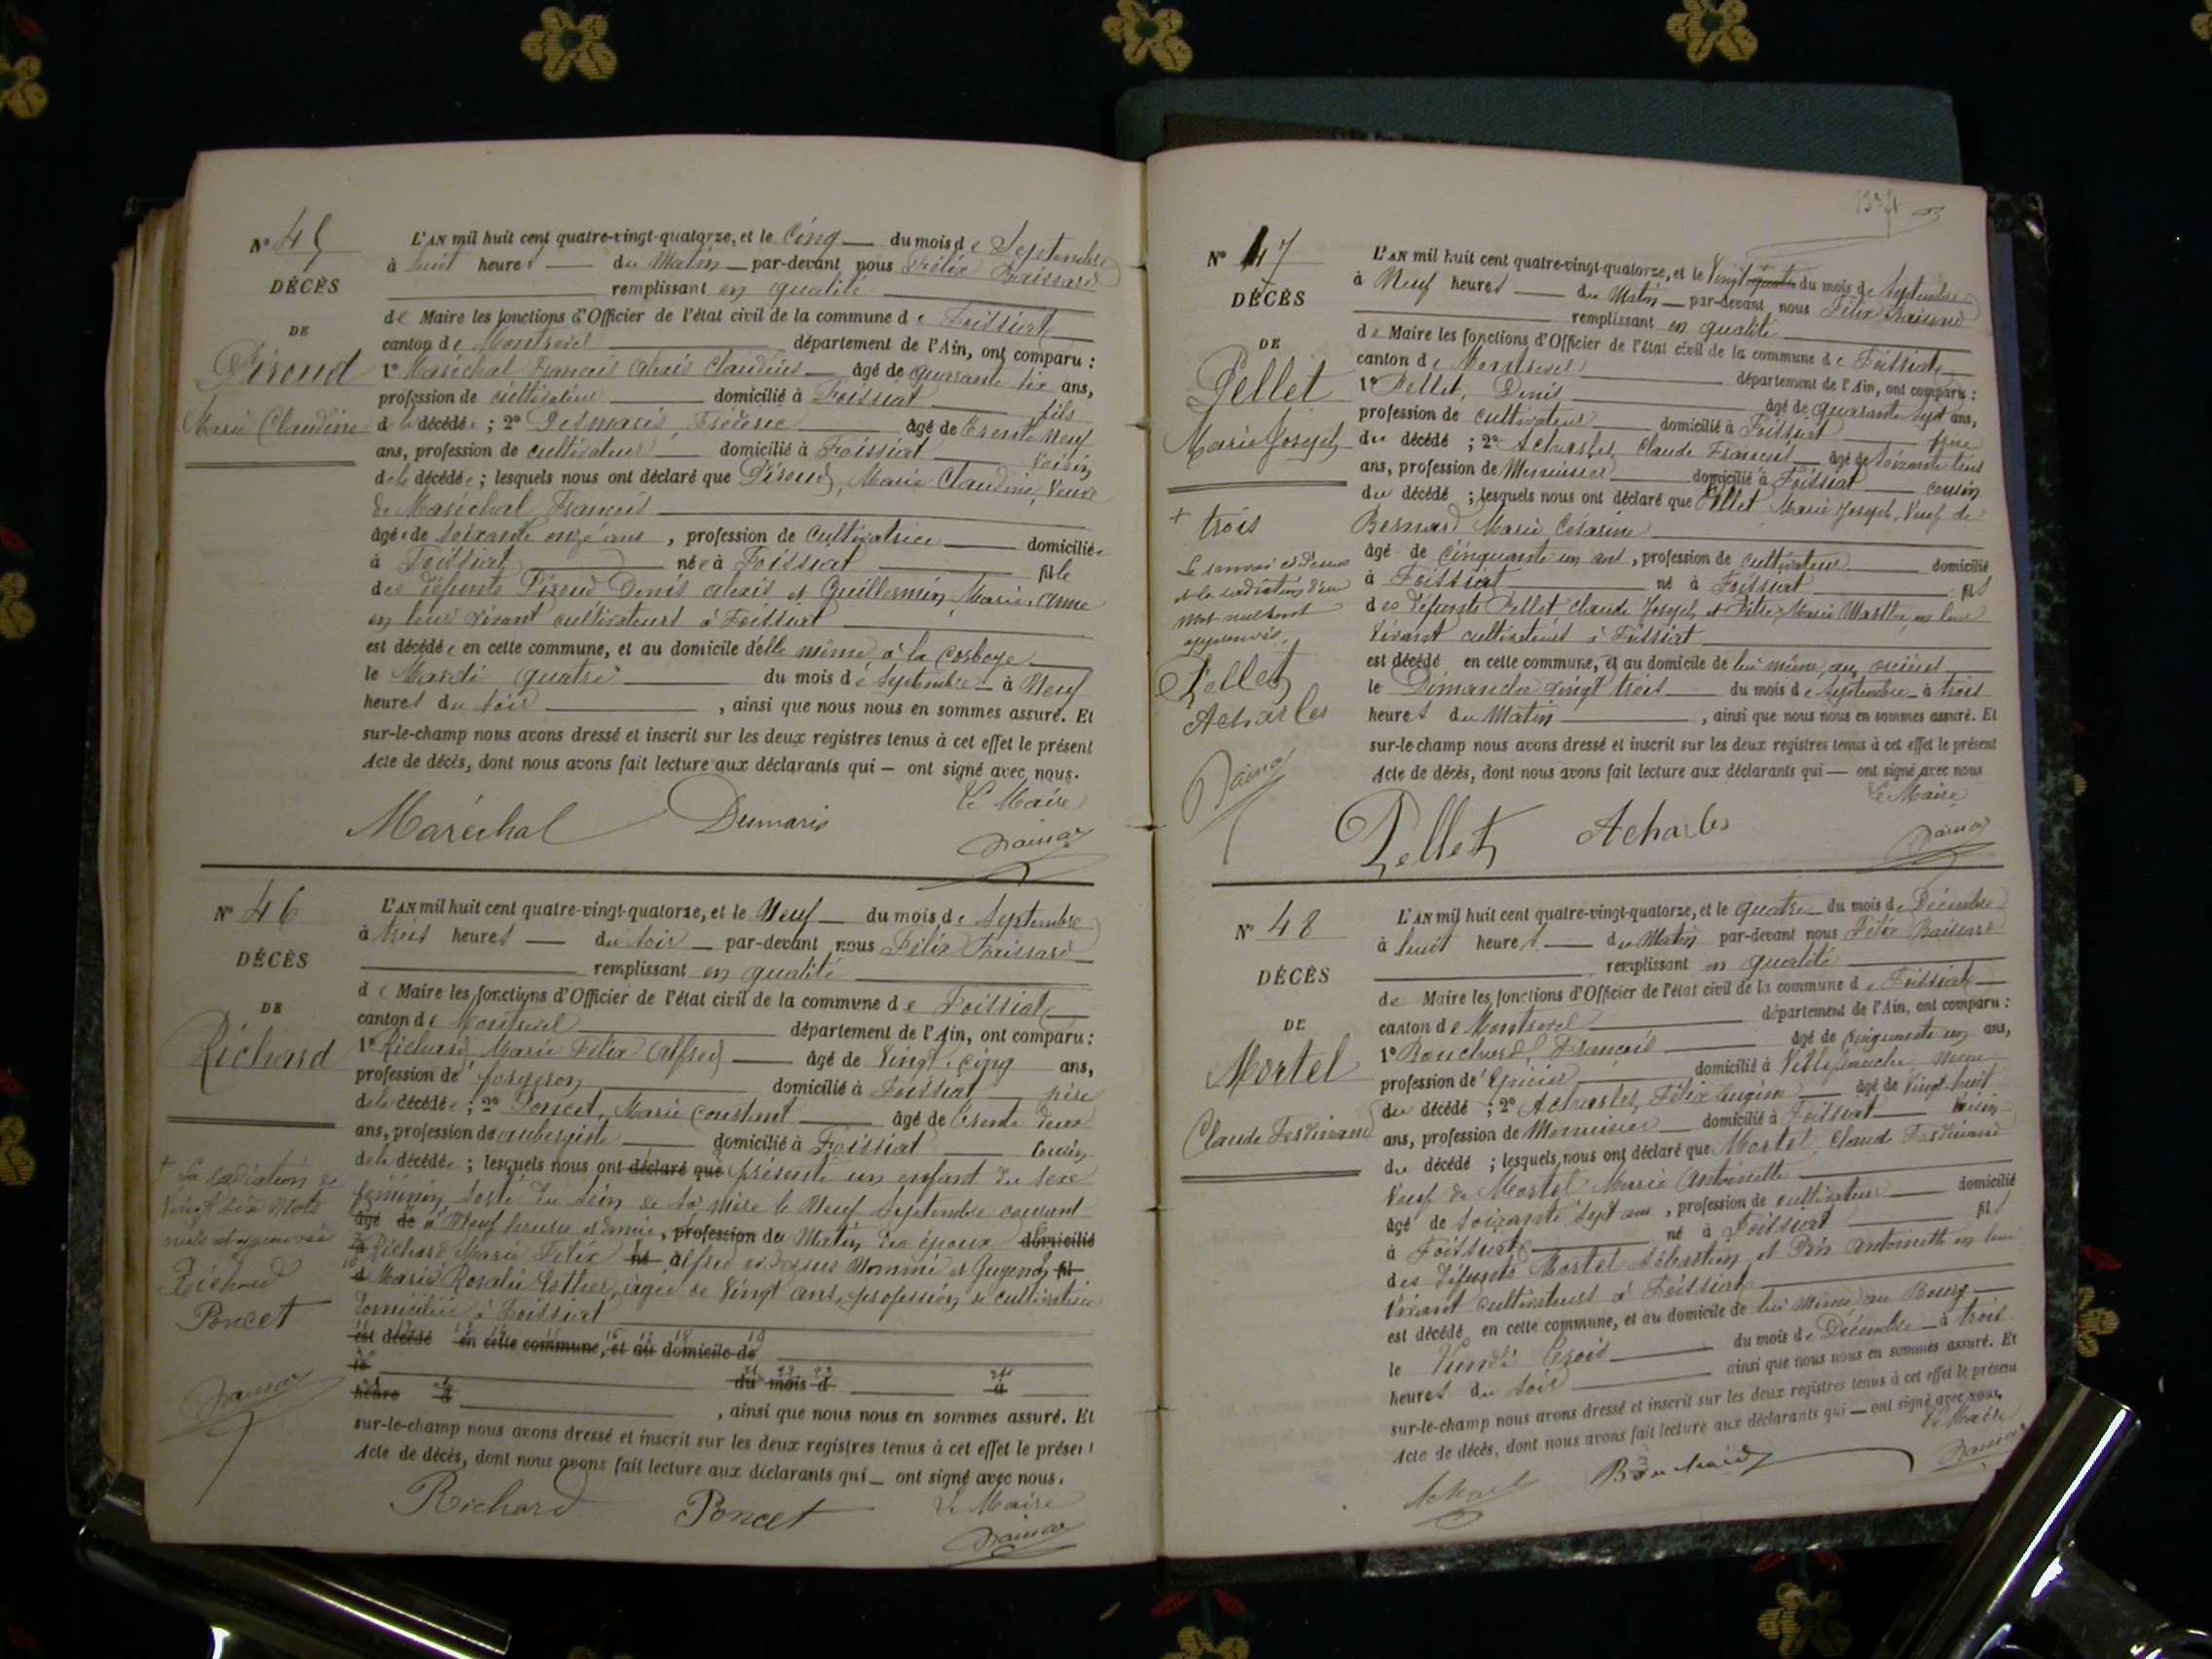 N° 45
DÉCÈS
DE
Piroud
Marie Claudine
L'AN mil huit cent quatre-vingt-quatorze, et le Cinq du mois de Septembre
à huit heures du Matin par-devant nous Félix Baissard
remplissant en qualité
de Maire les fonctions d'Officier de l'état civil de la commune de Foissiat
canton de Montrevel département de l'Ain, ont comparu :
1° Maréchal François Alexis Claudius âgé de quarante six ans,
profession de cultivateur domicilié à Foissiat fils
de la décédée ; 2° Desmaris, Fréderic âgé de trente neuf
ans, profession de cultivateur domicilié à Foissiat voisin
de la décédée ; lesquels nous ont déclaré que Piroud, Marie Claudine, Veuve
de Maréchal François
âgée de soixante onze ans, profession de cultivatrice domiciliée
à Foissiat née à Foissiat fille
des défunts Piroud Denis Alexis et Guillermin, Marie-Anne
en leur vivant cultivateurs à Foissiat
est décédée en cette commune, et au domicile d'elle même, à la Corboye
le Mardi quatre du mois de Septembre à Neuf
heures du soir, ainsi que nous nous en sommes assuré. Et
sur-le-champ nous avons dressé et inscrit sur les deux registres tenus à cet effet le présent
Acte de décès, dont nous avons fait lecture aux déclarants qui — ont signé avec nous.
Le Maire
Maréchal Desmaris
N° 46
DÉCÈS
DE
Richard
+ La radiation de
vingt six mots
nuls approuvée
Richard
Poncet
L'AN mil huit cent quatre-vingt-quatorze, et le Neuf du mois de Septembre
à trois heures du soir par-devant nous Félix Baissard
remplissant en qualité
de Maire les fonctions d'Officier de l'état civil de la commune de Foissiat
canton de Montrevel département de l'Ain, ont comparu :
1° Richard, Marie Félix Alfred âgé de Vingt-cinq ans,
profession de forgeron domicilié à Foissiat père
de la décédée ; 2° Poncet, Marie Constant âgé de trente deux
ans, profession de aubergiste domicilié à Foissiat cousin
de la décédée ; lesquels nous ont déclaré que présenté un enfant du sexe
féminin sorti du sein de sa mère le Neuf Septembre courant
âgé de à Neuf heures et demie, profession du Matin des époux domicilié
à Richard Marie Félix né Alfred ci dessus nommé et Guyend, fil
d Marie Rosalie Esther, âgée de Vingt ans, profession de cultivatrice
domiciliée à Foissiat
est décédé en cette commune, et au domicile de
le du mois d à
heure d , ainsi que nous nous en sommes assuré. Et
sur-le-champ nous avons dressé et inscrit sur les deux registres tenus à cet effet le présent
Acte de décès, dont nous avons fait lecture aux déclarants qui — ont signé avec nous.
Le Maire
Richard Poncet
N° 47
DÉCÈS
DE
Pellet
Marie Joseph
+ trois
Le renvoi ci-dessus
et la radiation d'un
mot nul sont
approuvés.
Pellet
Acharles
L'AN mil huit cent quatre-vingt-quatorze, et le Vingt quatre du mois de Septembre
à Neuf heures du Matin par-devant nous Félix Baissard
remplissant en qualité
de Maire les fonctions d'Officier de l'état civil de la commune de Foissiat
canton de Montrevel département de l'Ain, ont comparu :
1° Pellet, Denis âgé de quarante sept ans,
profession de cultivateur domicilié à Foissiat frère
du décédé ; 2° Acharles, Claude François âgé de soixante trois
ans, profession de Menuisier domicilié à Foissiat cousin
du décédé ; lesquels nous ont déclaré que Pellet Marie Joseph, Veuf de
Bernard Marie Césarine
âgé de cinquante un ans, profession de cultivateur domicilié
à Foissiat né à Foissiat fils
des défunts Pellet, Claude Joseph et Marie Marthe en leur
vivant cultivateurs à Foissiat
est décédé en cette commune, et au domicile de lui même, au
le Dimanche vingt trois du mois de Septembre à trois
heures du Matin, ainsi que nous nous en sommes assuré. Et
sur-le champ nous avons dressé et inscrit sur les deux registres tenus à cet effet le présent
Acte de décès, dont nous avons fait lecture aux déclarants qui — ont signé avec nous
Le Maire
Pellet Acharles
N° 48
DÉCÈS
DE
Mortel
Claude Ferdinand
L'AN mil huit cent quatre-vingt-quatorze, et le quatre du mois de Décembre
à huit heures du Matin par-devant nous Félix Baissard
remplissant en qualité
de Maire les fonctions d'Officier de l'état civil de la commune de Foissiat
canton de Montrevel département de l'Ain, ont comparu :
1° Bouchard, François âgé de cinquante un ans,
profession d'Epicier domicilié à Villefranche
du décédé ; 2° Acharles, Félix Eugène âgé de vingt-huit
ans, profession de Menuisier domicilié à Foissiat voisin
du décédé ; lesquels nous ont déclaré que Mortel, Claude Ferdinand
Veuf de Mortel Marie Antoinette
âgé de soixante sept ans, profession de cultivateur domicilié
à Foissiat né à Foissiat fils
des défunts Mortel Sébastien et Prin Antoinette en leur
vivant cultivateurs à Foissiat
est décédé en cette commune, et au domicile de lui même au Bourg
le Lundi trois du mois de Décembre à trois
heures du soir ainsi que nous nous en sommes assuré. Et
sur-le-champ nous avons dressé et inscrit sur les deux registres tenus à cet effet le présent
Acte de décès, dont nous avons fait lecture aux déclarants qui — ont signé avec nous.
Le Maire
Bouchard